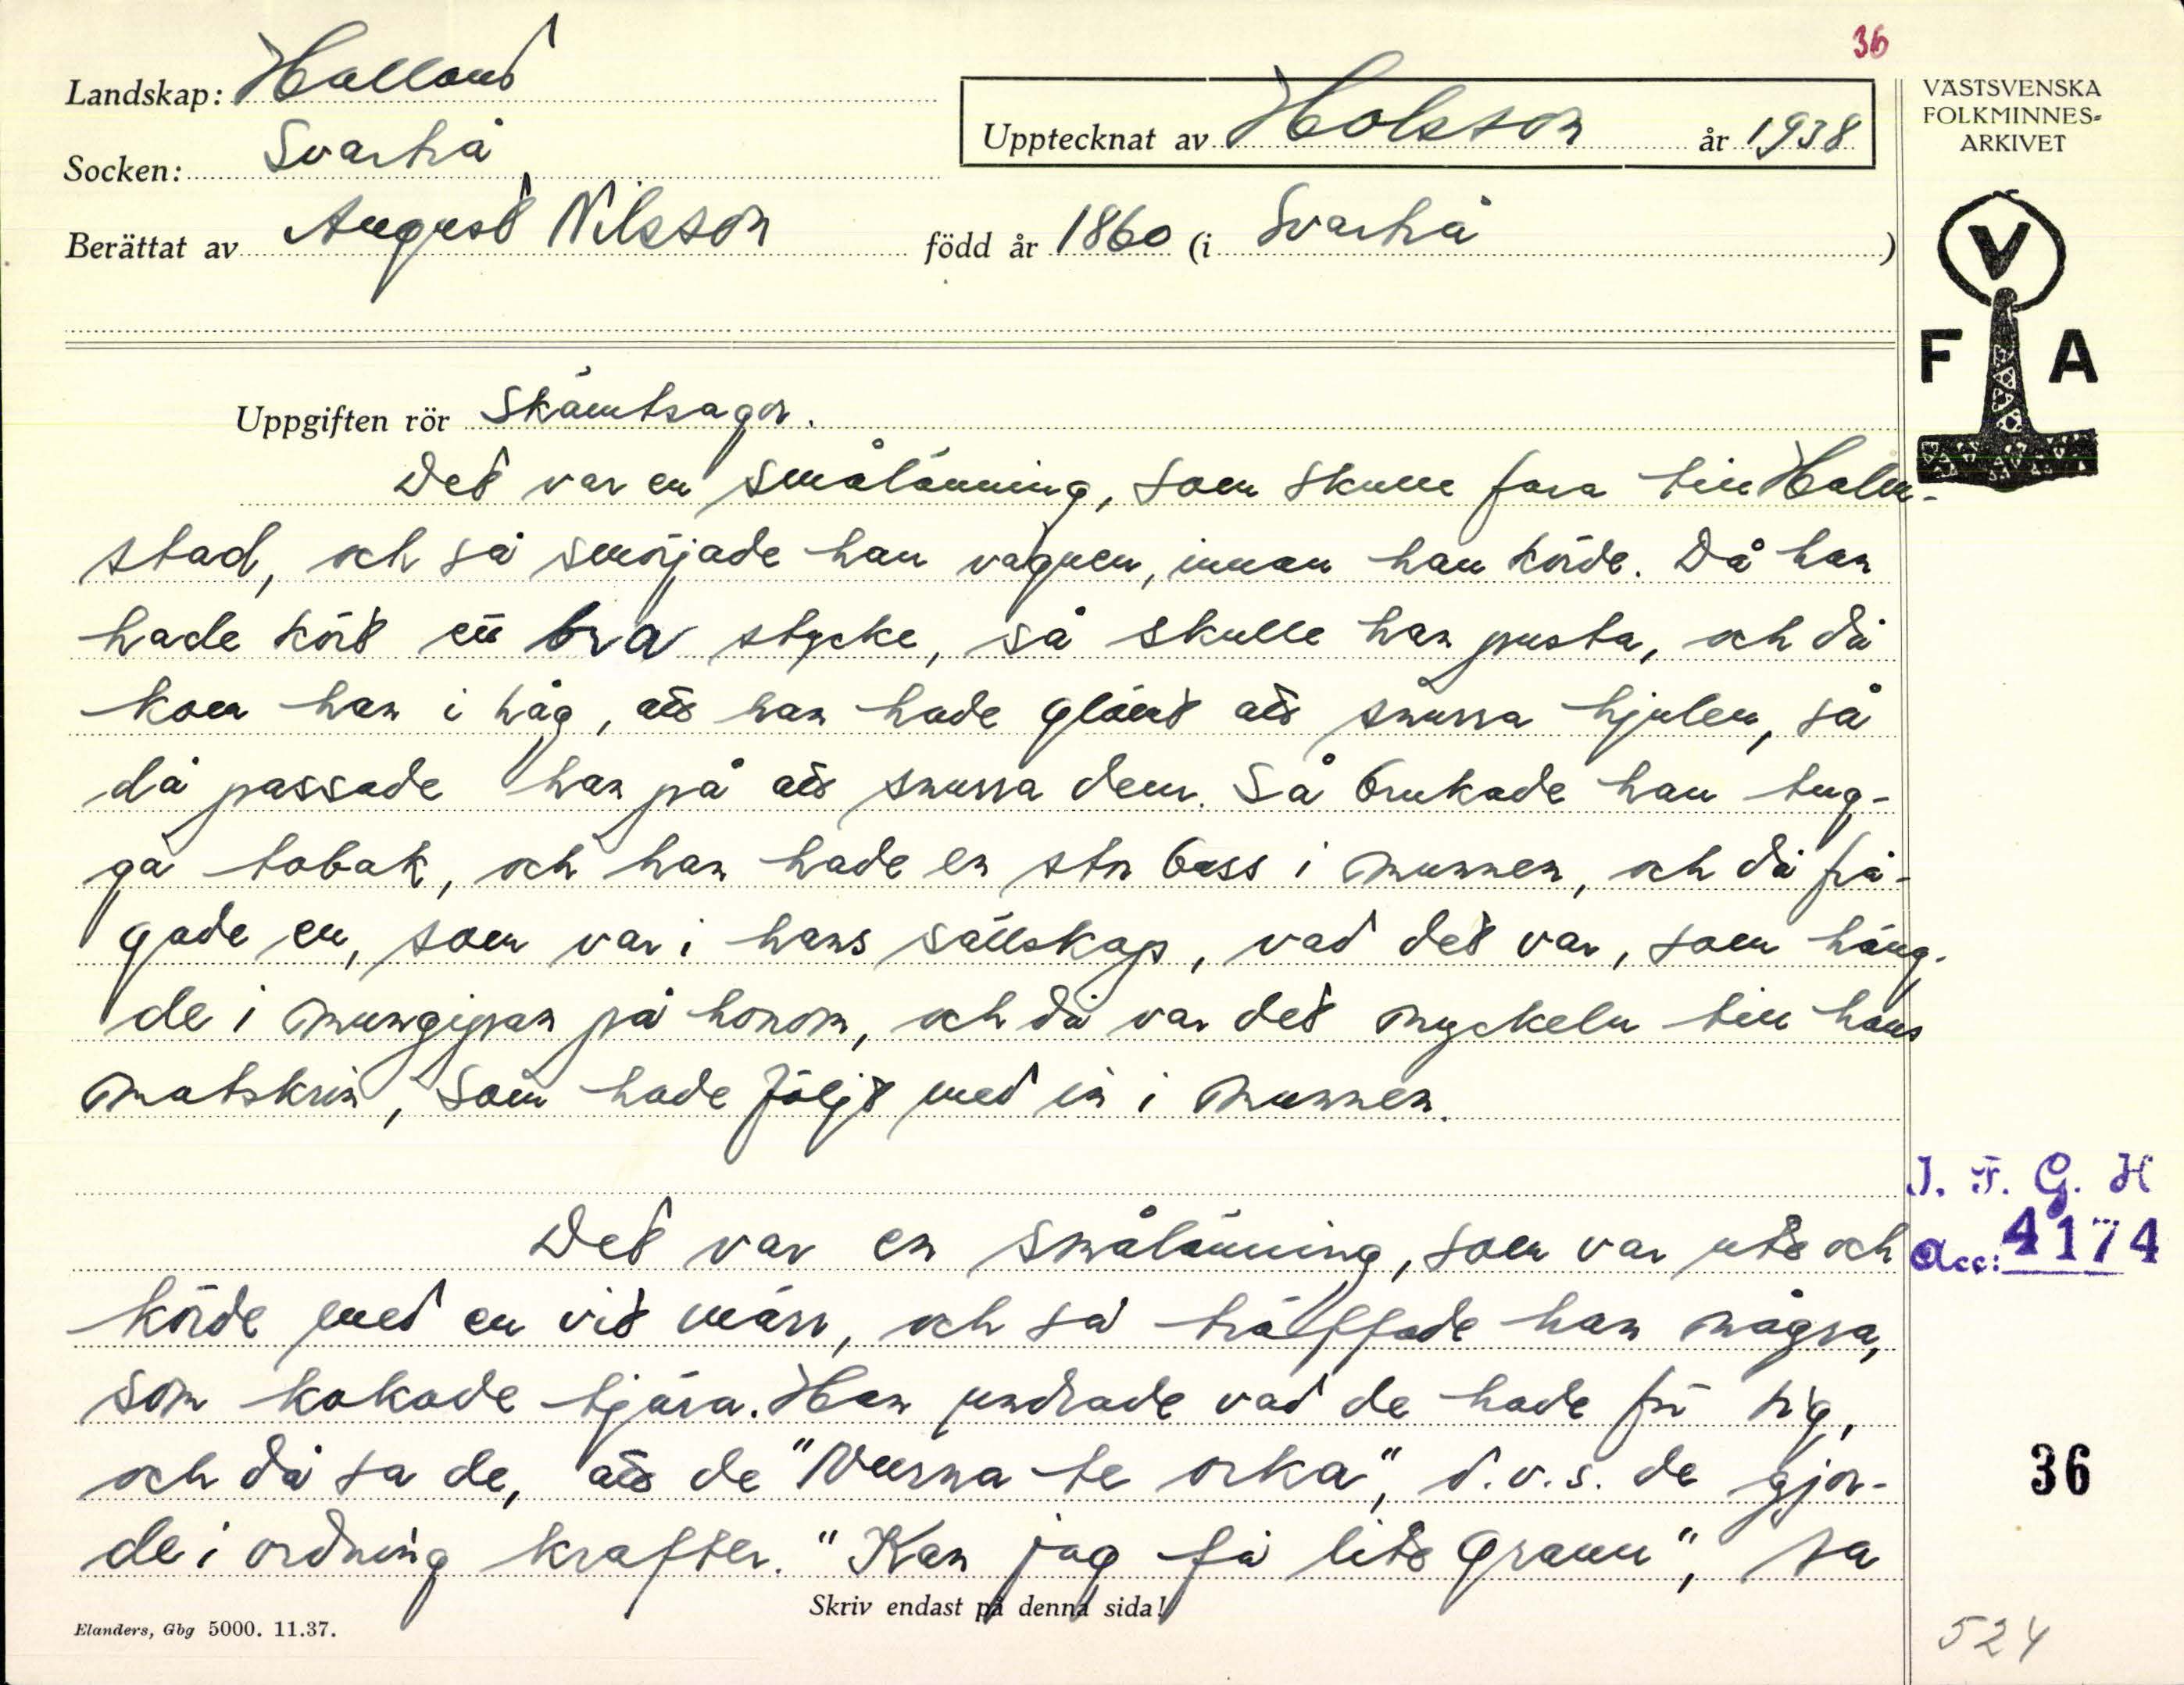 36
Landskap: Halland
VÄSTSVENSKA
FOLKMINNES-
ARKIVET
Upptecknat av Holsson år 1938
Socken: Svartrå
Berättat av August Nilsson född år 1860 (i Svartrå )
V
F A
Uppgiften rör Skämtsagor.
Det var en smålänning, som skulle fara till Halm-
stad, och så smörjade han vagnen, innan han körde. Då han
hade kört ett bra stycke, så skulle han pusta, och då
kom han i håg, att han hade glömt att snurra hjulen, så
då passade han på att snurra dem. Så brukade han tug-
ga tobak, och han hade en stor buss i munnen, och då frå-
gade en, som var i hans sällskap, vad det var, som häng-
de i mungipan på honom, och då var det nyckeln till hans
matskrin, som hade följt med in i munnen.
Det var en smålänning, som var ute och
körde med en vit märr, och så träffade han några,
som kokade tjära. Han undrade vad de hade för sig,
och då sa de, att de "Vurna te orka", d.v.s. de gjor-
de i ordning krafter. "Kan jag få lite grann", sa
I. F. G. H
Acc: 4174
36
Skriv endast på denna sida!
Elanders, Gbg 5000. 11.37.
524